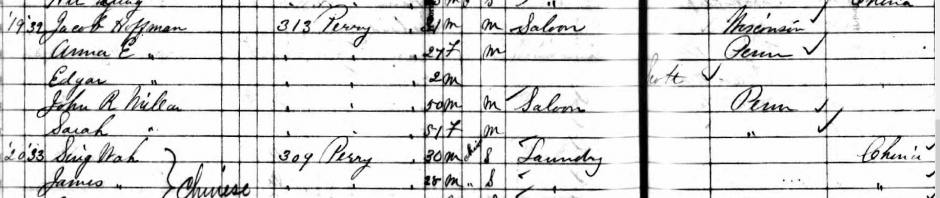 China
19 32 Jacob Hoffman 313 Perry 31 m m Saloon Wisconsin
Anna E " " " 27 F m Penn
Edgar " " " 2 m
John R " " 50 m m Saloon Penn
Sarah " " " 51 F m "
20 33 Sing Wah 309 Perry 30 m S Laundry China
James " Chinese " " 28 m " S " "